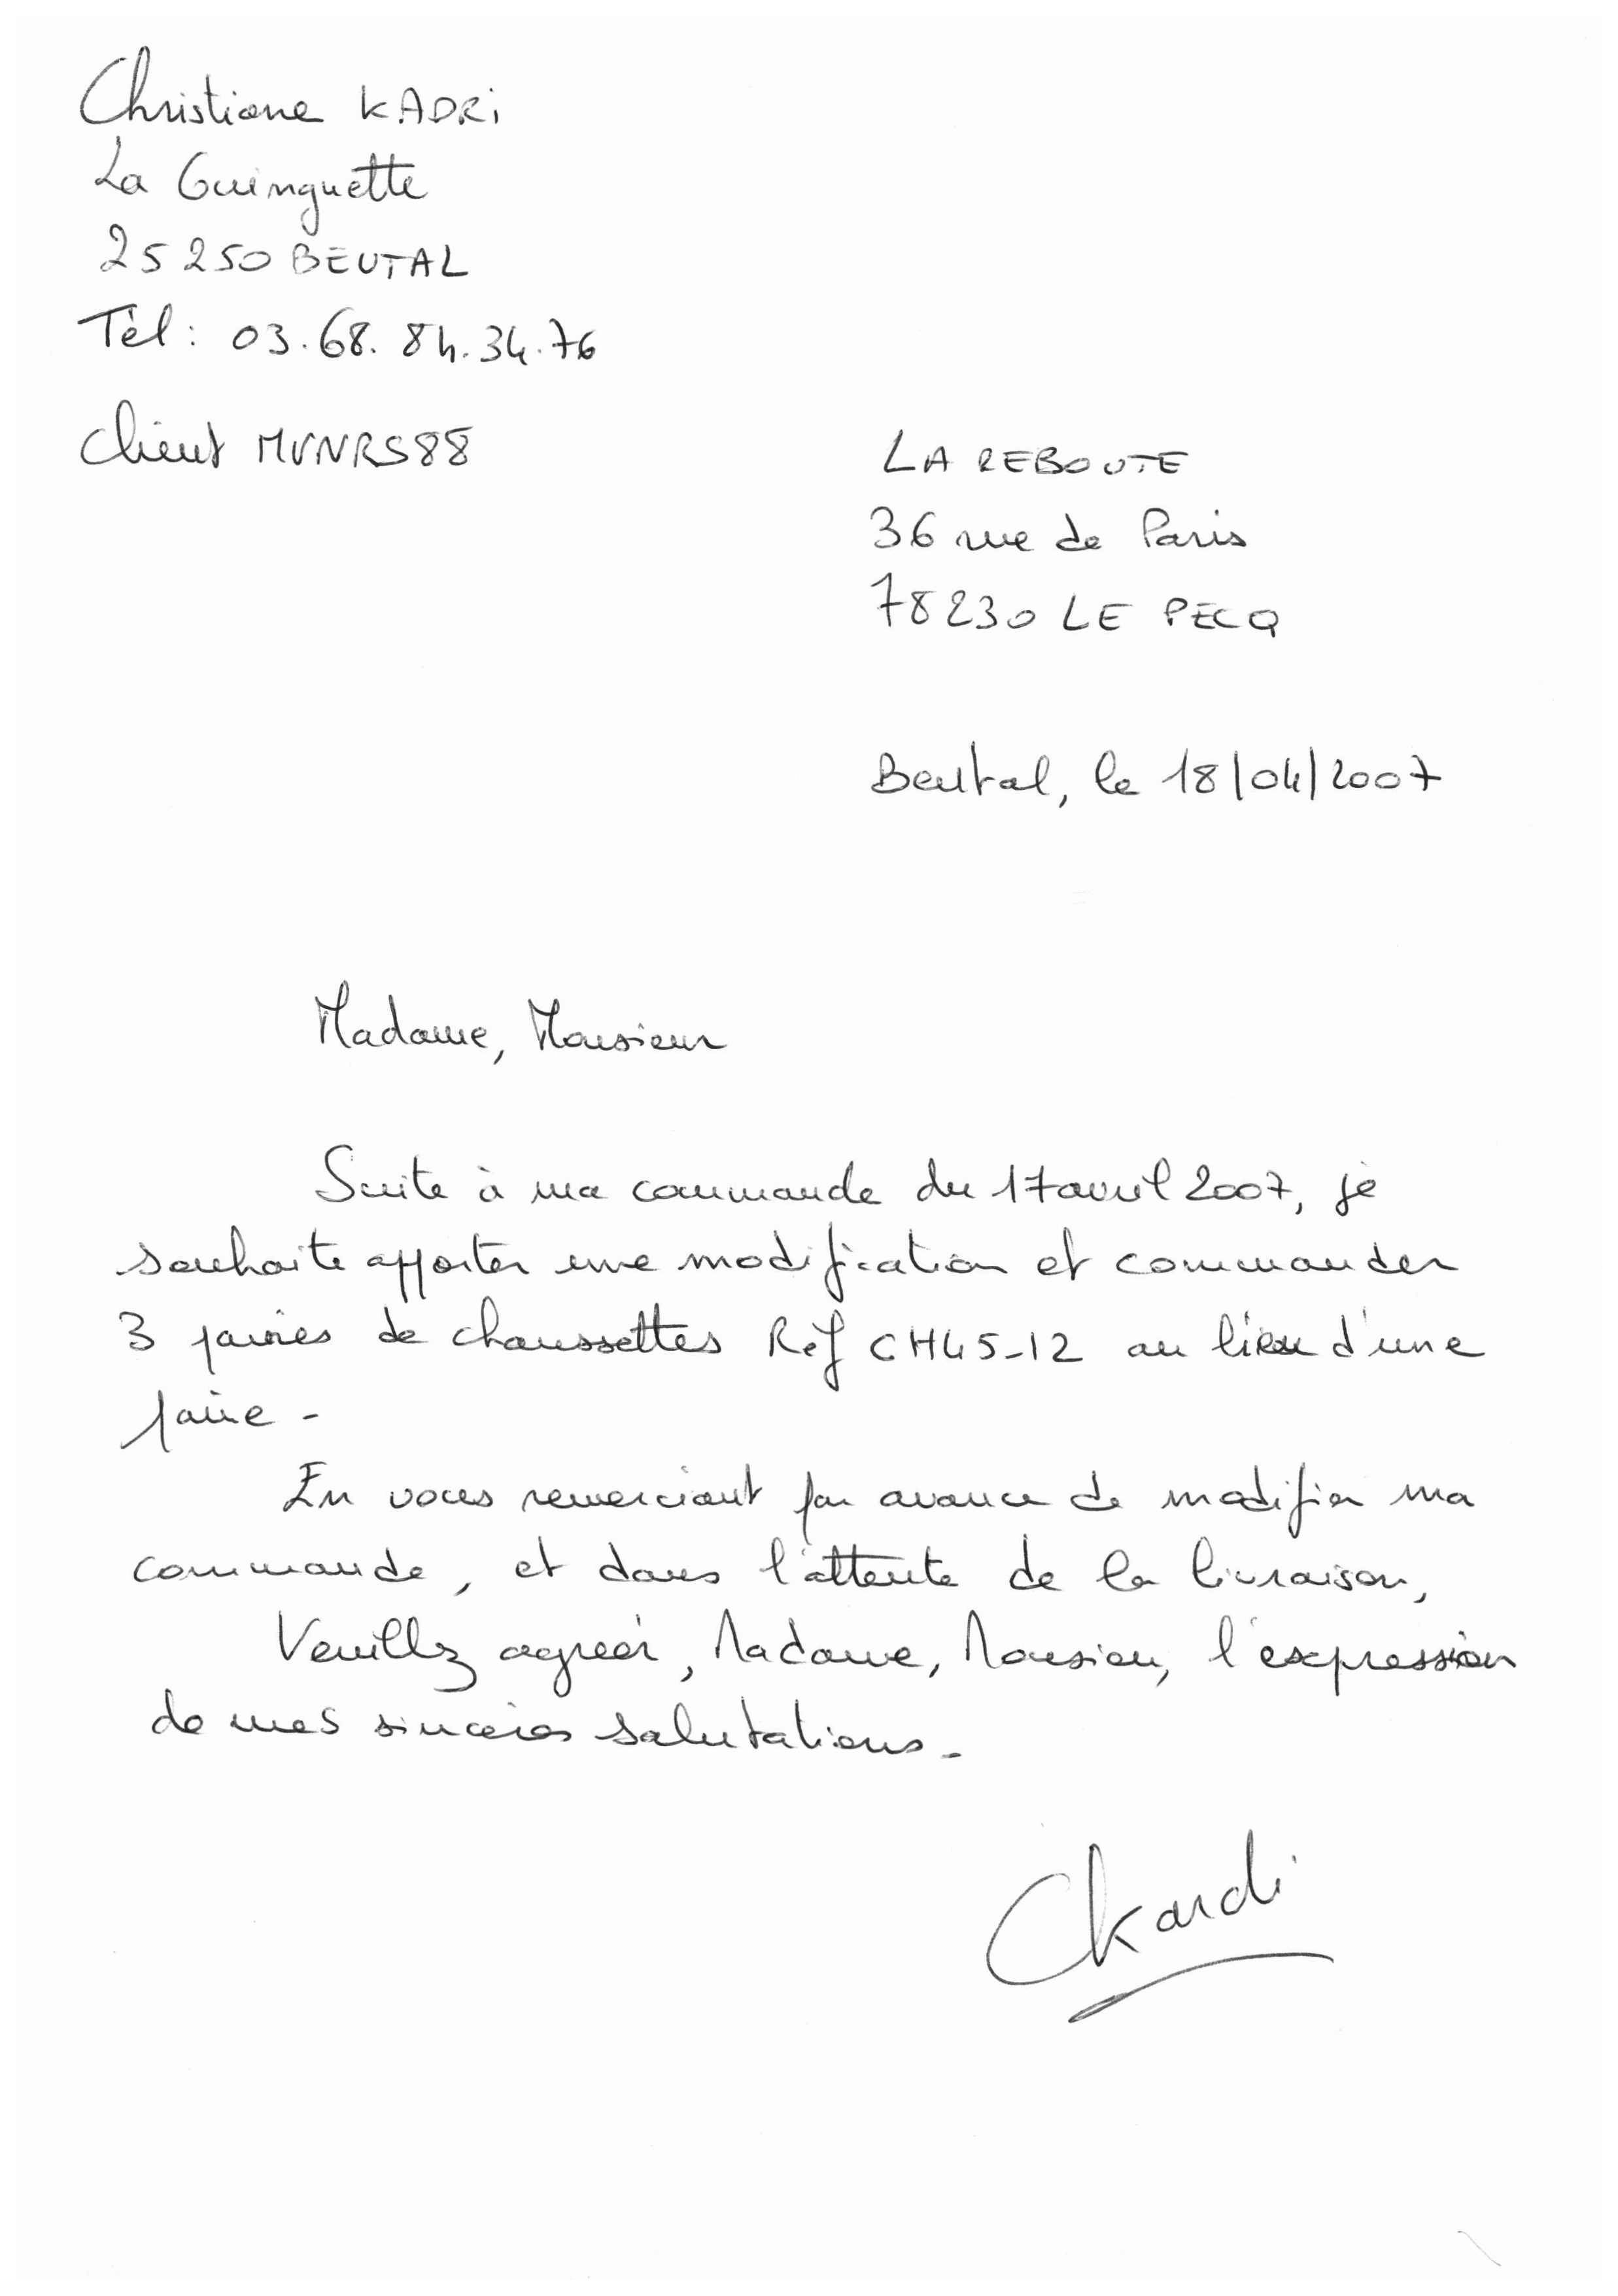 Christiane KADRI
La Guinguette
25250 BEUTAL
Tèl : 03.68.84.34.76
Client MVNRS88
LA REBOUTE
36 rue de Paris
78230 LE PECQ
Beutal, le 18/04/2007
Madame, Monsieur
Suite à ma commande du 17 avril 2007, je
souhaite apporter une modification et commander
3 paires de chaussettes Réf CH45-12 au lieu d'une
paire -
En vous remerciant par avance de modifier ma
commande, et dans l'attente de la livraison,
Veuillez agréer, Madame, Monsieur, l'expression
de mes sincères salutations -
CKardi